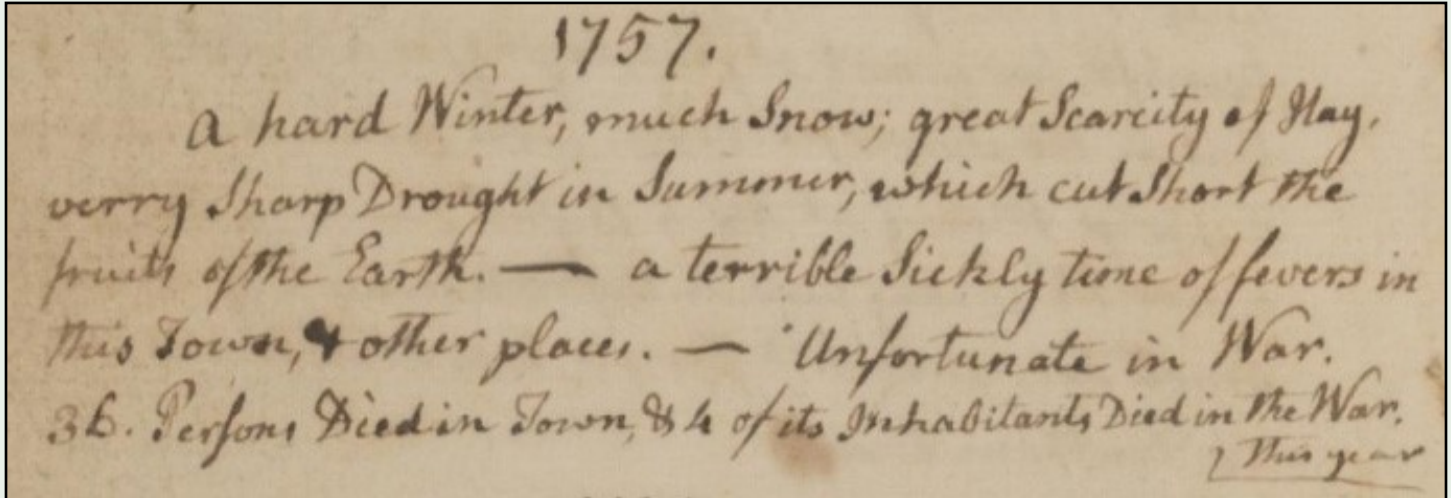 1757.
A hard Winter, much Snow; great Scarcity of Hay.
verry Sharp Drought in Summer, which cut Short the
fruits of the Earth. — a terrible Sickly time of fevers in
this Town, & other places. — Unfortunate in War.
36. Persons Died in Town, & 4 of its Inhabitants Died in the War.
this year